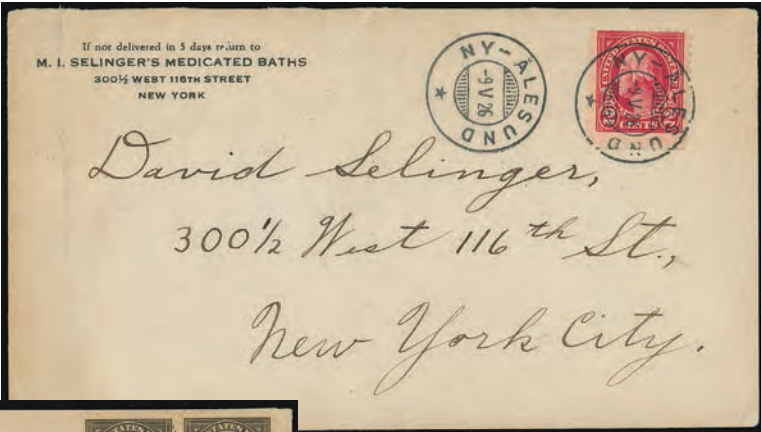 If not delivered in 5 days return to
M. I. SELINGER'S MEDICATED BATHS
300½ WEST 116TH STREET
NEW YORK
NY-ÅLESUND
-9 V 26
UNITED STATES POSTAGE
NY-ÅLESUND
-9 V 26
2 CENTS 2
David Selinger,
300½ West 116th St.,
New York City.